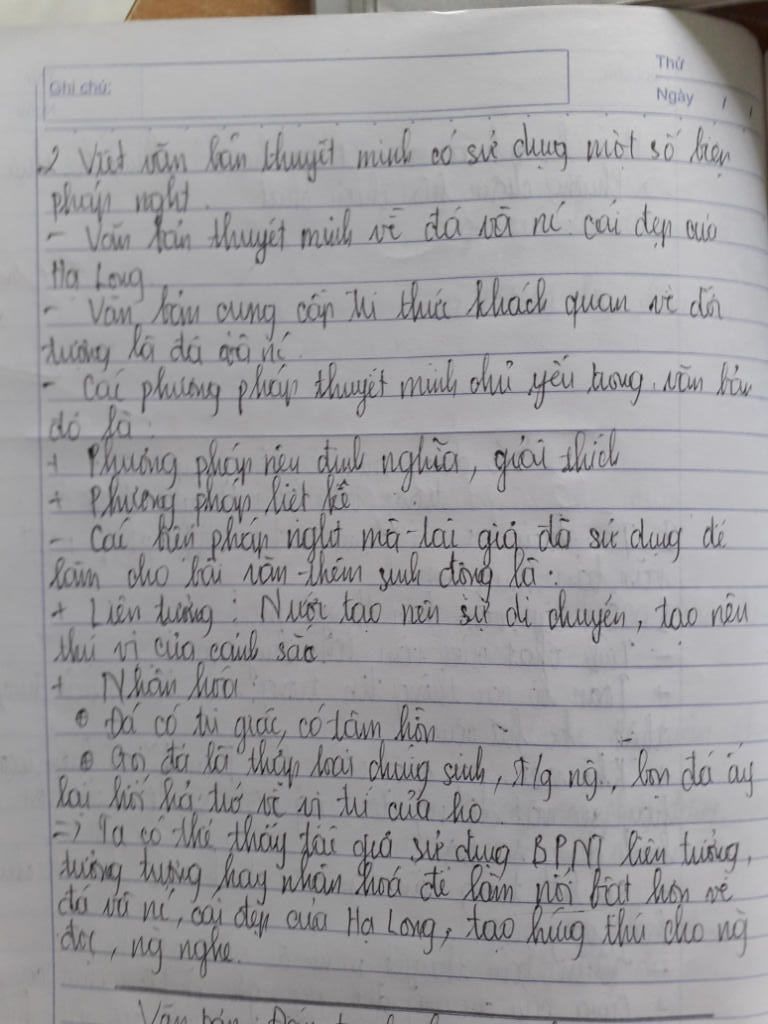 Ghi chú:
Thứ
Ngày / /
2 Viết văn bản thuyết minh có sử dụng một số biện
pháp nght.
- Văn bản thuyết minh về đá và nc cái đẹp của
Hạ Long
- Văn bản cung cấp tri thức khách quan về đối
tượng là đá và nc.
- Các phương pháp thuyết minh chủ yếu trong văn bản
đó là:
+ Phương pháp nêu định nghĩa, giải thích
+ Phương pháp liệt kê
- Các biện pháp nght mà tác giả đã sử dụng để
làm cho bài văn thêm sinh động là:
+ Liên tưởng: Nước tạo nên sự di chuyển, tạo nên
thú vị của cảnh sắc
+ Nhân hóa:
Đá có tri giác, có tâm hồn
Gọi đá là thập loại chúng sinh, t/g ng, bọn đá ấy
lại hối hả trở về vị trí của họ.
=> Ta có thể thấy tác giả sử dụng BPNT liên tưởng,
tưởng tượng hay nhân hoá để làm nổi bật hơn về
đá và nc, cái đẹp của Hạ Long, tạo hứng thú cho ng
đọc, ng nghe.
Văn bản: Đấu